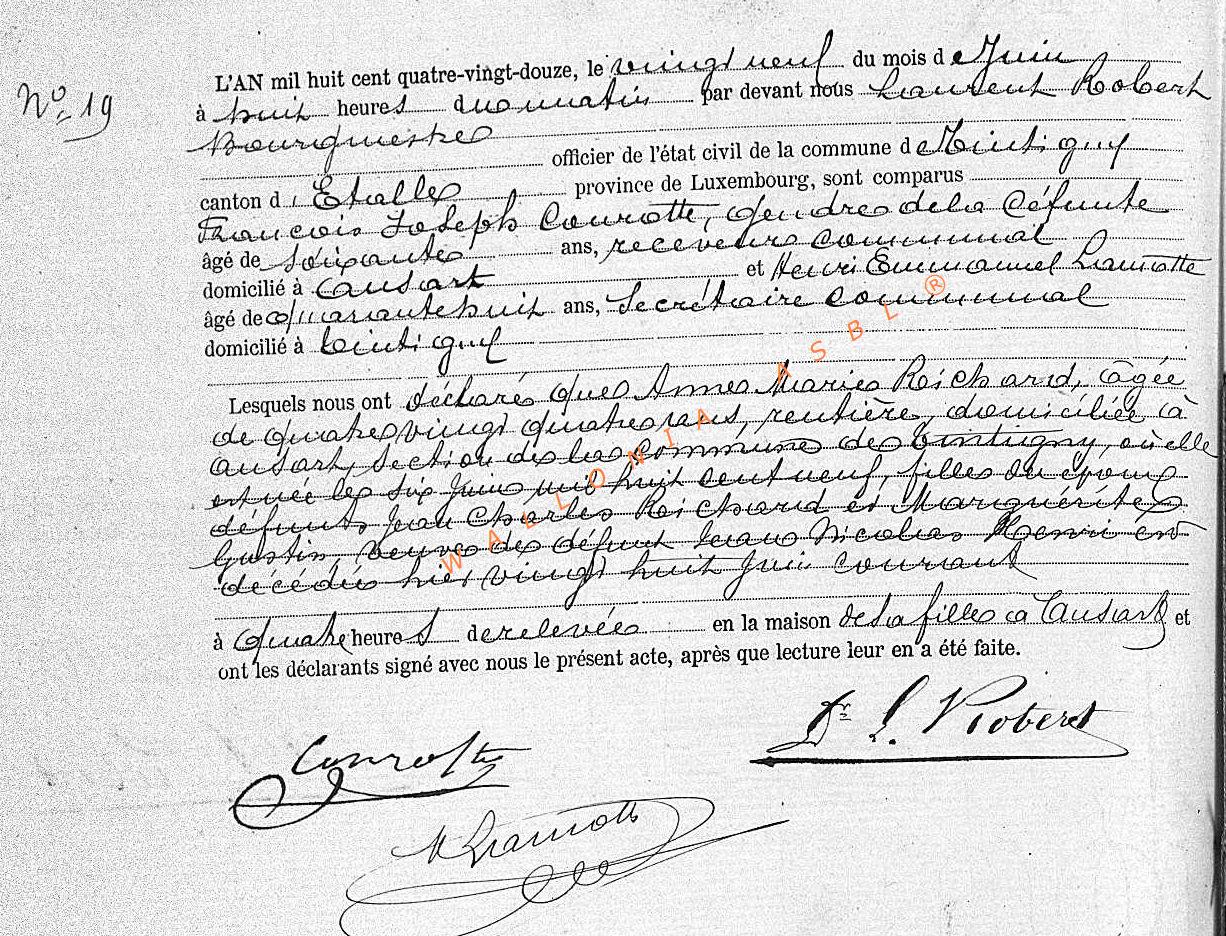 N° 19
L'AN mil huit cent quatre-vingt-douze, le vingt neuf du mois de Juin
à huit heures du matin par devant nous Laurent Robert
Bourgmestre
officier de l'état civil de la commune de Tintigny
canton d'Etalle province de Luxembourg, sont comparus
François Joseph Conrotte, gendre de la défunte
âgé de soixante ans, receveur communal
domicilié à Ansart et Henri Emmanuel Lamotte
âgé de quarante huit ans, secrétaire communal
domicilié à Tintigny
Lesquels nous ont déclaré que Anne Marie Reichard, âgée
de quatre vingt quatre ans, rentière, domiciliée à
Ansart, section de la commune de Tintigny, où elle
est née le six Juin mil huit cent neuf, fille des époux
défunts Jean Charles Reichard et Marguérite
Gustin, veuve de défunt Jean Nicolas Henri est
décédée hier vingt huit Juin courant
à quatre heures de relevée en la maison de sa fille à Ansart et
ont les déclarants signé avec nous le présent acte, après que lecture leur en a été faite.
Dr L. Robert
Conrotte
H Lamotte
WALLONIA ASBL ®